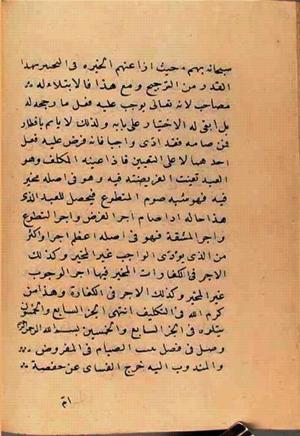 سبحانه بهم حيث اذا عنهم الخيره فى التخيير بهذا
القدر من الترجيح ومع هذا فالابتلاء له
مصاحب لانه تعالى يوجب عليه فعل ما رجحه له
بل ابقى له الاختيار على بابه ولذلك لا ياثم بافطار
فمن صامه فقد ادى واجبا فانه فرض عليه فعل
احدهما لا على التعيين فاذا عينه المكلف وهو
العبد تعينت الفريضته فيه وهو فى اصله مخير
فيه فهو شبه صوم المتطوع فيحصل للعبد الذى
هذا حاله اذا صام اجر الفرض واجر التطوع
واجر المشقة فهو فى اصله اعظم اجرا واكثر
من الذى يؤدى الواجب غير المخير وكذلك
الاجر فى الكفارات المخير فيها اجر الوجوب
غير المخير وكذلك الاجر فى الكفارة وهذا من
كرم الله فى التكليف انتهى الجز السابع والخمسون
يتلوه فى الجز السابع والخمسين بسم الله الرحمن
وصل فى فصل من الصيام فى المفروض
والمندوب اليه خرج النساى عن حفصة
ام